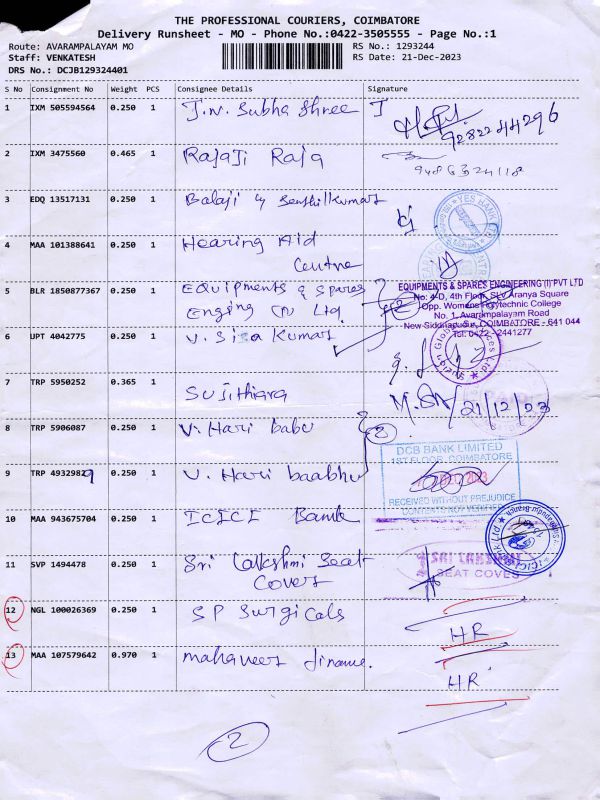 THE PROFESSIONAL COURIERS, COIMBATORE
Delivery Runsheet - MO - Phone No.:0422-3505555 - Page No.:1
Route: AVARAMPALAYAM MO
RS No.: 1293244
Staff: VENKATESH
RS Date: 21-Dec-2023
DRS No.: DCJB129324401
S No Consignment No Weight PCS Consignee Details Signature
1 IXM 505594564 0.250 1 J.N. Subha Shree J
9282244296
2 IXM 3475560 0.465 1 Rajaji Raja
9486324118
3 EDQ 13517131 0.250 1 Balaji & Senthilkumar
YES BANK
4 MAA 101388641 0.250 1 Hearing Aid
Centre
5 BLR 1850877367 0.250 1 Equipments & Spares
Enging (P) Ltd
EQUIPMENTS & SPARES ENGINEERING (I) PVT LTD
No: 4-D, 4th Floor, SLV Aranya Square
Opp. Womens Polytechnic College
No. 1, Avarampalayam Road
New Siddhapudur, COIMBATORE - 641 044
Tel: 0422 - 2441277
6 UPT 4042775 0.250 1 V. Siva Kumar
7 TRP 5950252 0.365 1 Sujithiara
21/12/23
8 TRP 5906087 0.250 1 V. Hari babu
2
DCB BANK LIMITED
1ST FLOOR, COIMBATORE
DEC 2023
RECEIVED WITHOUT PREJUDICE
CONTENTS NOT VERIFIED
9 TRP 49329829 0.250 1 V. Hari baabhu
10 MAA 943675704 0.250 1 ICICI Bank
ICICI Bank
11 SVP 1494478 0.250 1 Sri Lakshmi Seat
Covers
SRI LAKSHMI
SEAT COVES
12 NGL 100026369 0.250 1 SP Surgicals
HR
13 MAA 107579642 0.970 1 mahaveer
HR
2